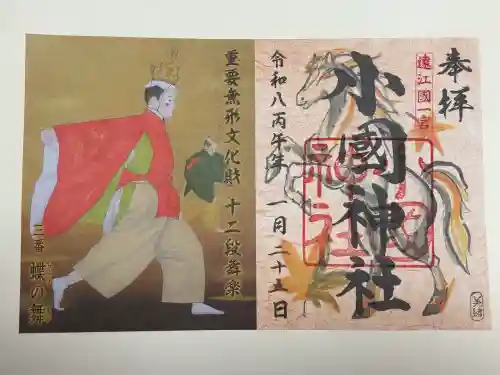 奉拝
遠江國一宮
小國神社
令和八丙午年 一月二十五日
重要無形文化財 十二段舞楽
三番 蝶の舞